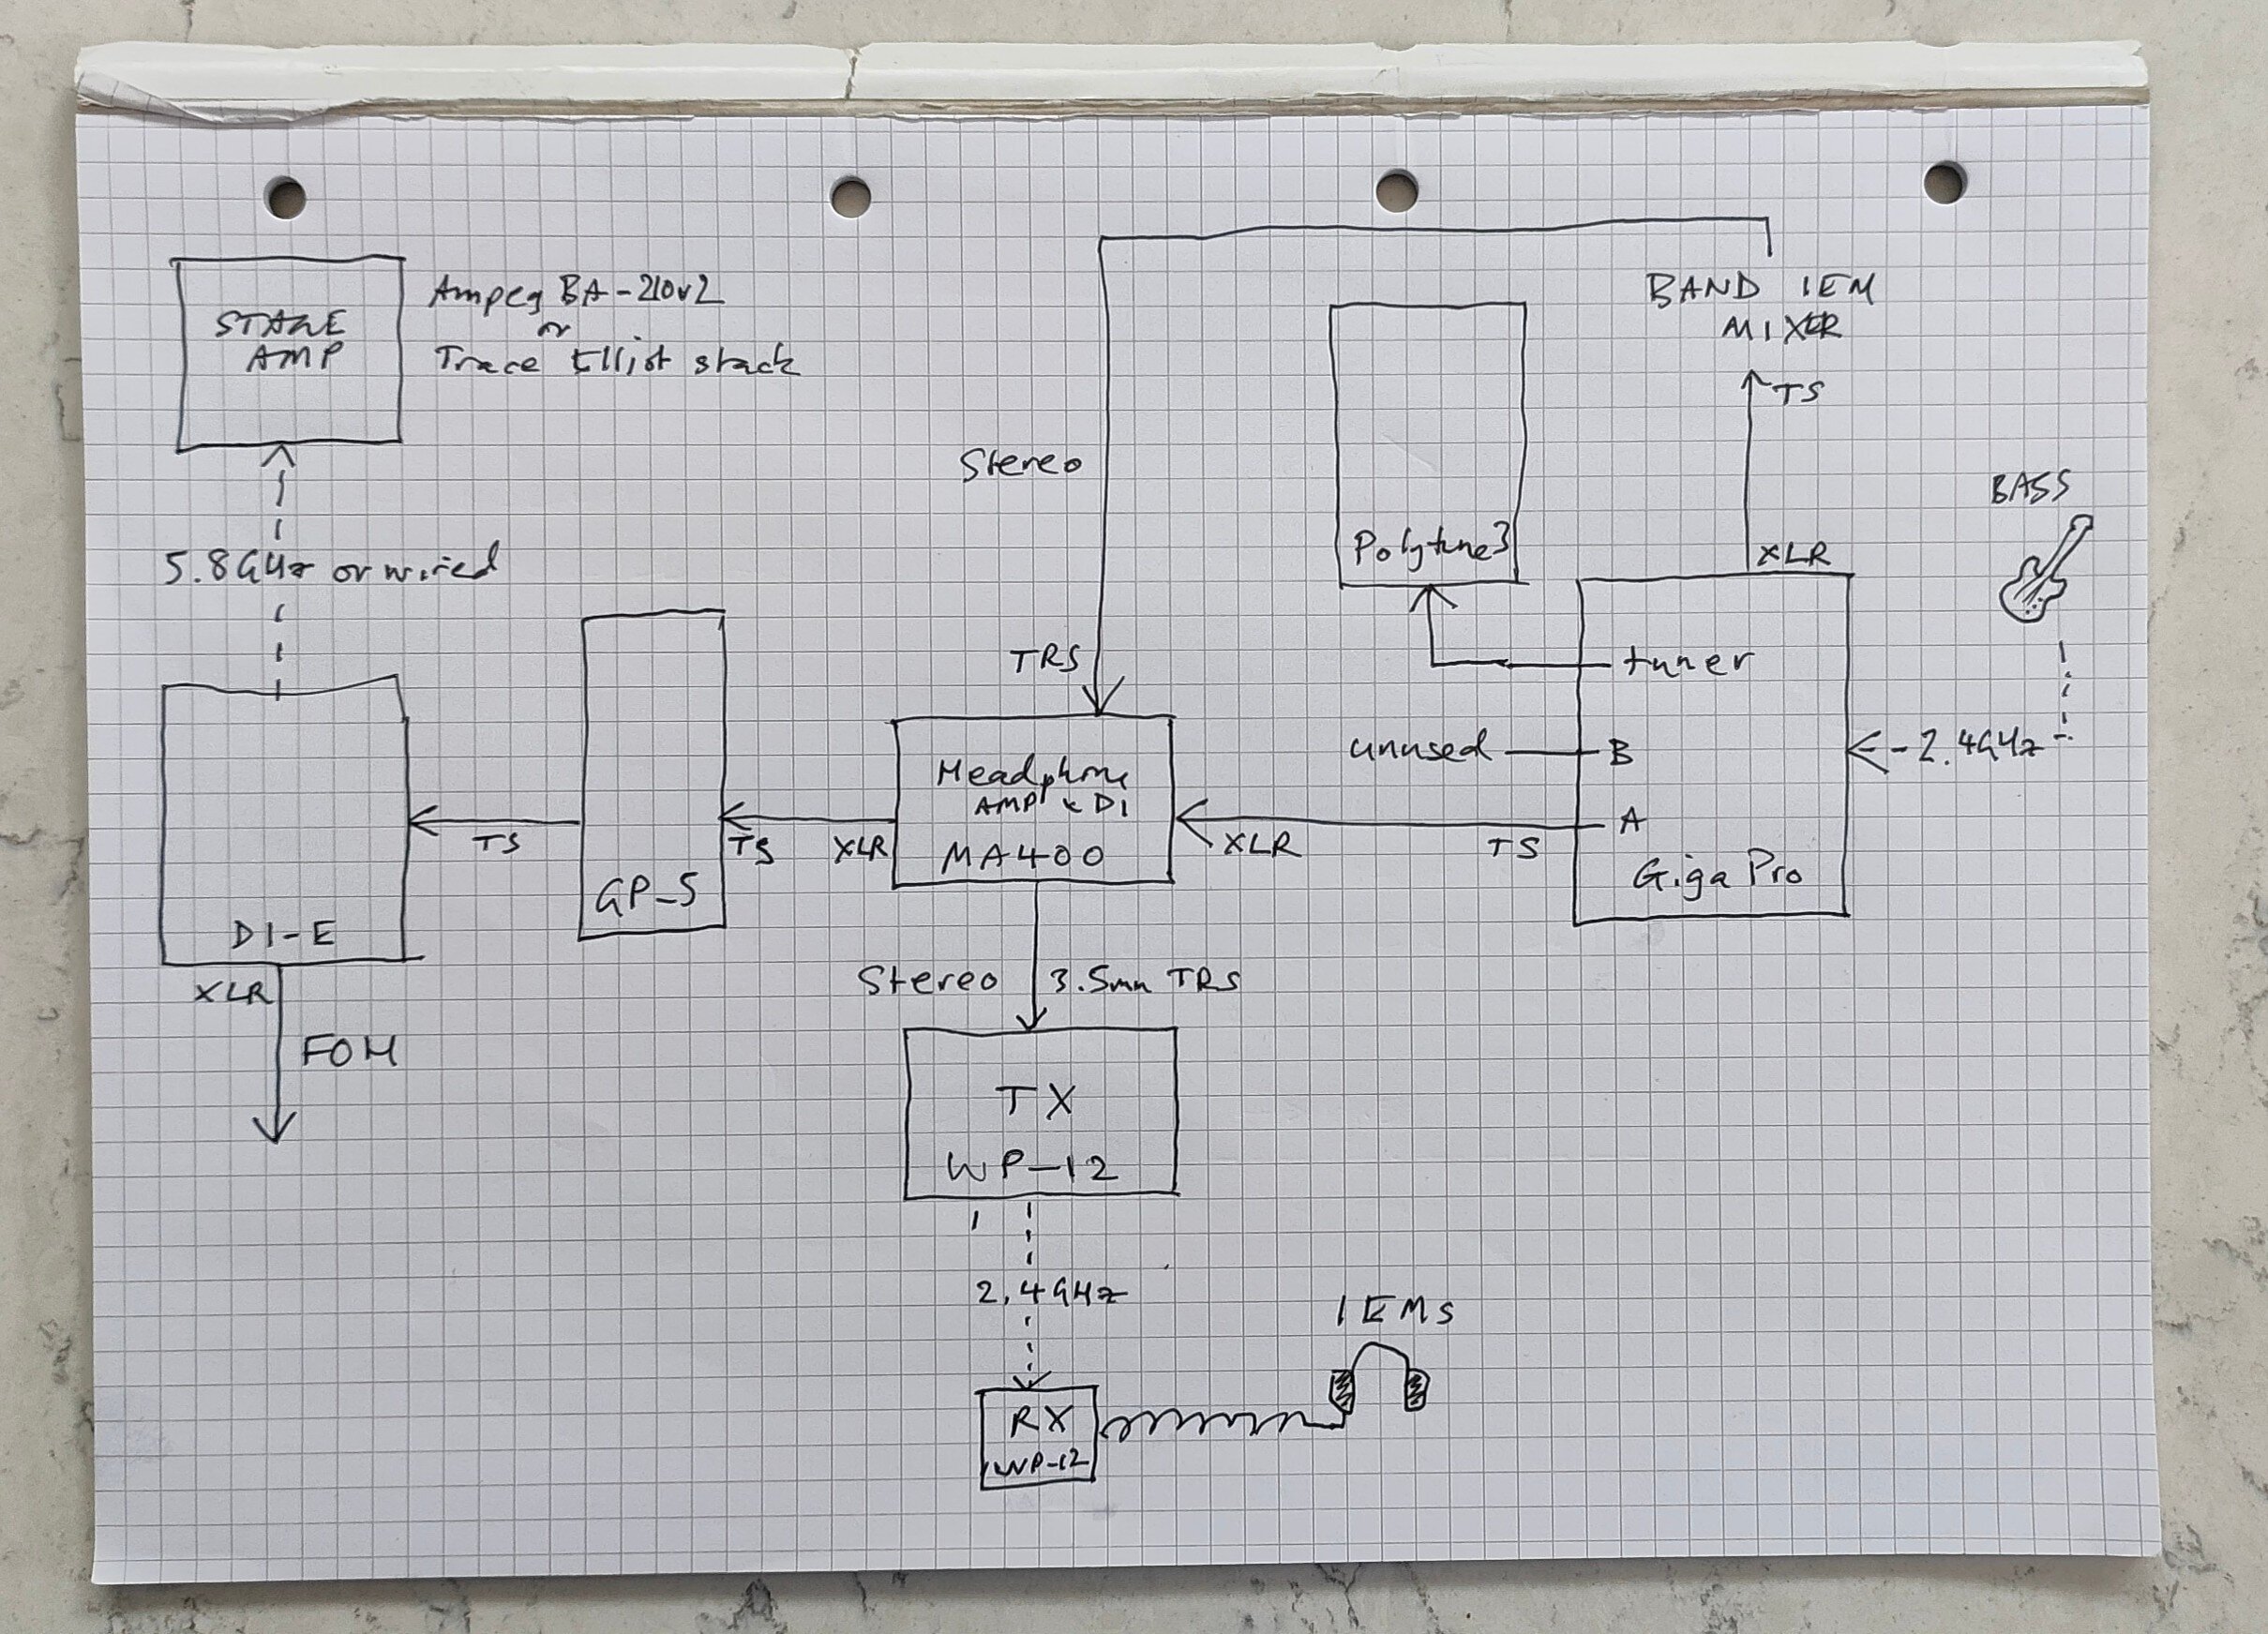 STAGE
AMP
Ampeg BA-210v2
or
Trace Elliot stack
5.8GHz or wired
DI-E
XLR
FOH
TS
GP-5
TS
XLR
Stereo
TRS
Headphone
AMP & DI
MA400
XLR
TS
Polytune3
BAND IEM
MIXER
TS
XLR
tuner
unused
B
A
Giga Pro
BASS
2.4GHz
Stereo
3.5mm TRS
TX
WP-12
2.4GHz
RX
WP-12
IEMS